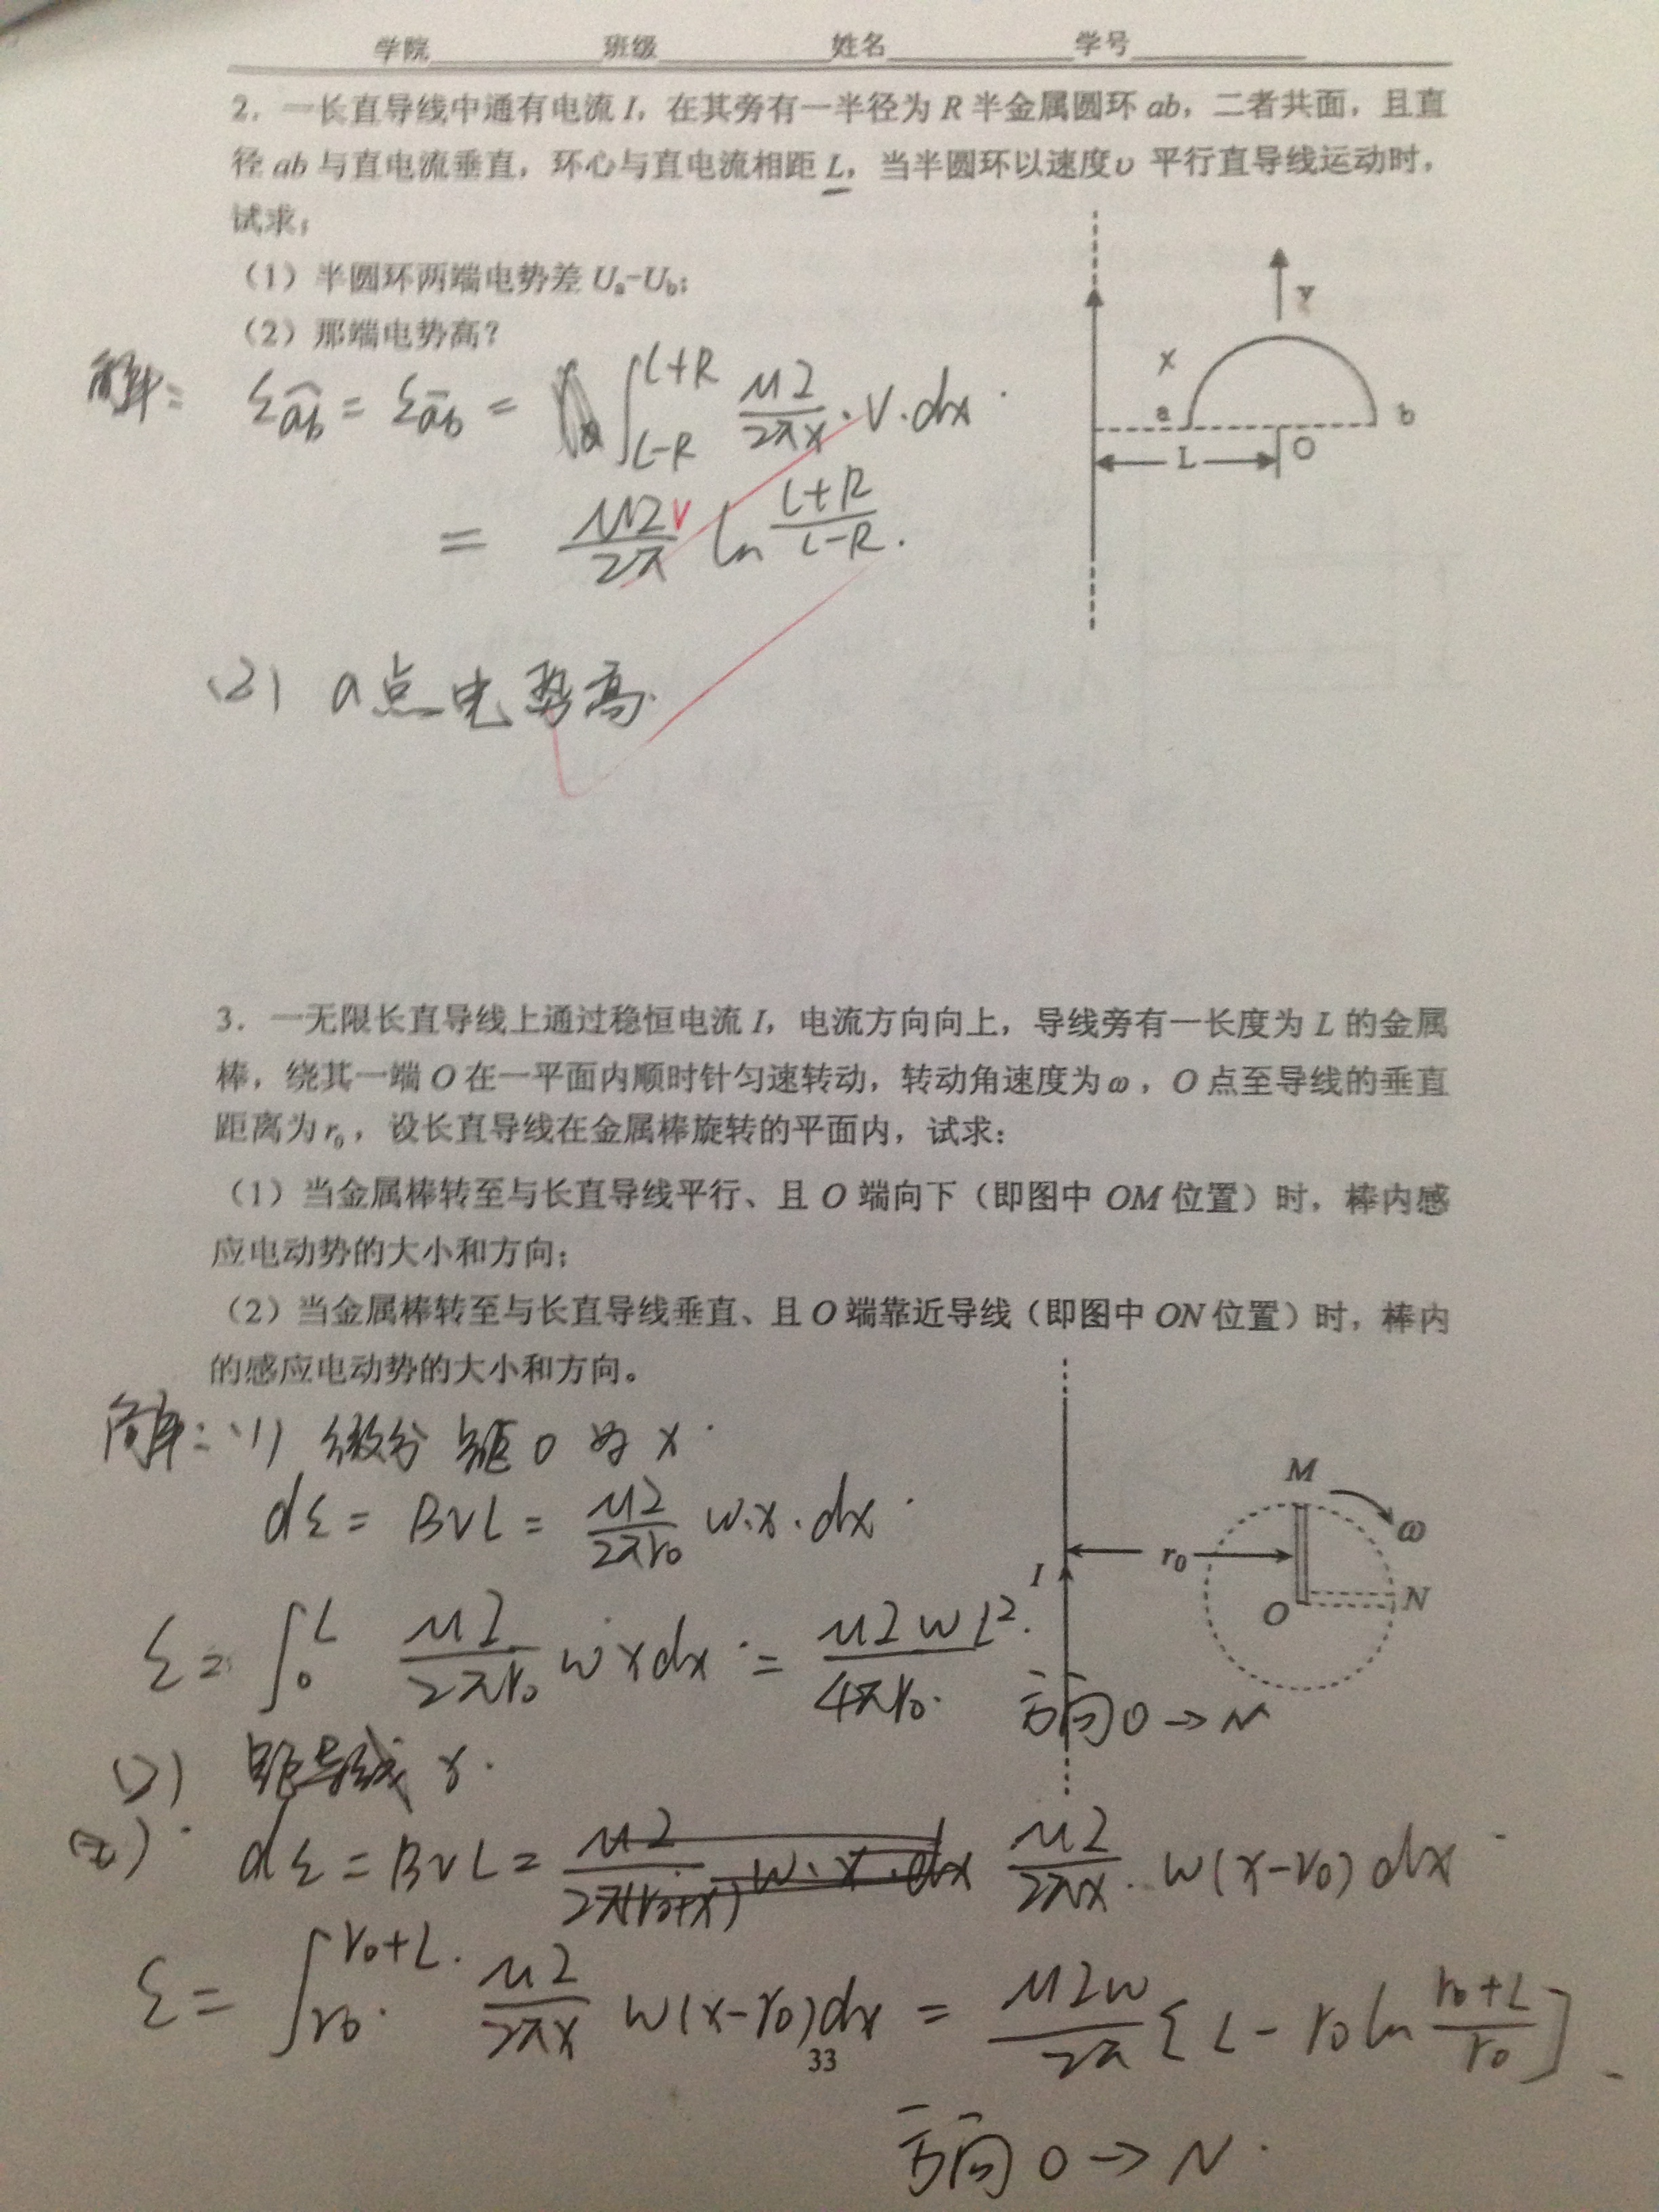 学院 班级 姓名 学号
2．一长直导线中通有电流 I，在其旁有一半径为 R 半金属圆环 ab，二者共面，且直
径 ab 与直电流垂直，环心与直电流相距 L，当半圆环以速度υ 平行直导线运动时，
试求：
（1）半圆环两端电势差 Uₐ-U_b；
（2）那端电势高？
v
X
a
b
L
O
解： ε_ab = ε_ab = ∫_{L-R}^{L+R} μI/2πx · V · dx
= μIV/2π ln (L+R)/(L-R).
(2) a点电势高.
3．一无限长直导线上通过稳恒电流 I，电流方向向上，导线旁有一长度为 L 的金属
棒，绕其一端 O 在一平面内顺时针匀速转动，转动角速度为ω，O 点至导线的垂直
距离为 r₀，设长直导线在金属棒旋转的平面内，试求：
（1）当金属棒转至与长直导线平行、且 O 端向下（即图中 OM 位置）时，棒内感
应电动势的大小和方向；
（2）当金属棒转至与长直导线垂直、且 O 端靠近导线（即图中 ON 位置）时，棒内
的感应电动势的大小和方向。
M
ω
r₀
I
O
N
解：(1) 微分 距O为x.
dε = BVL = μI/2πr₀ w·x·dx
ε = ∫_0^L μI/2πr₀ w x dx = μIwL²/4πr₀. 方向O→M
(2) 距导线x.
dε = BVL = μI/2π(r₀+x) w·x·dx μI/2πx · w(x-r₀)dx
ε = ∫_{r₀}^{r₀+L} μI/2πx w(x-r₀)dx = μIw/2π [L - r₀ ln (r₀+L)/r₀]
33
方向O→N.